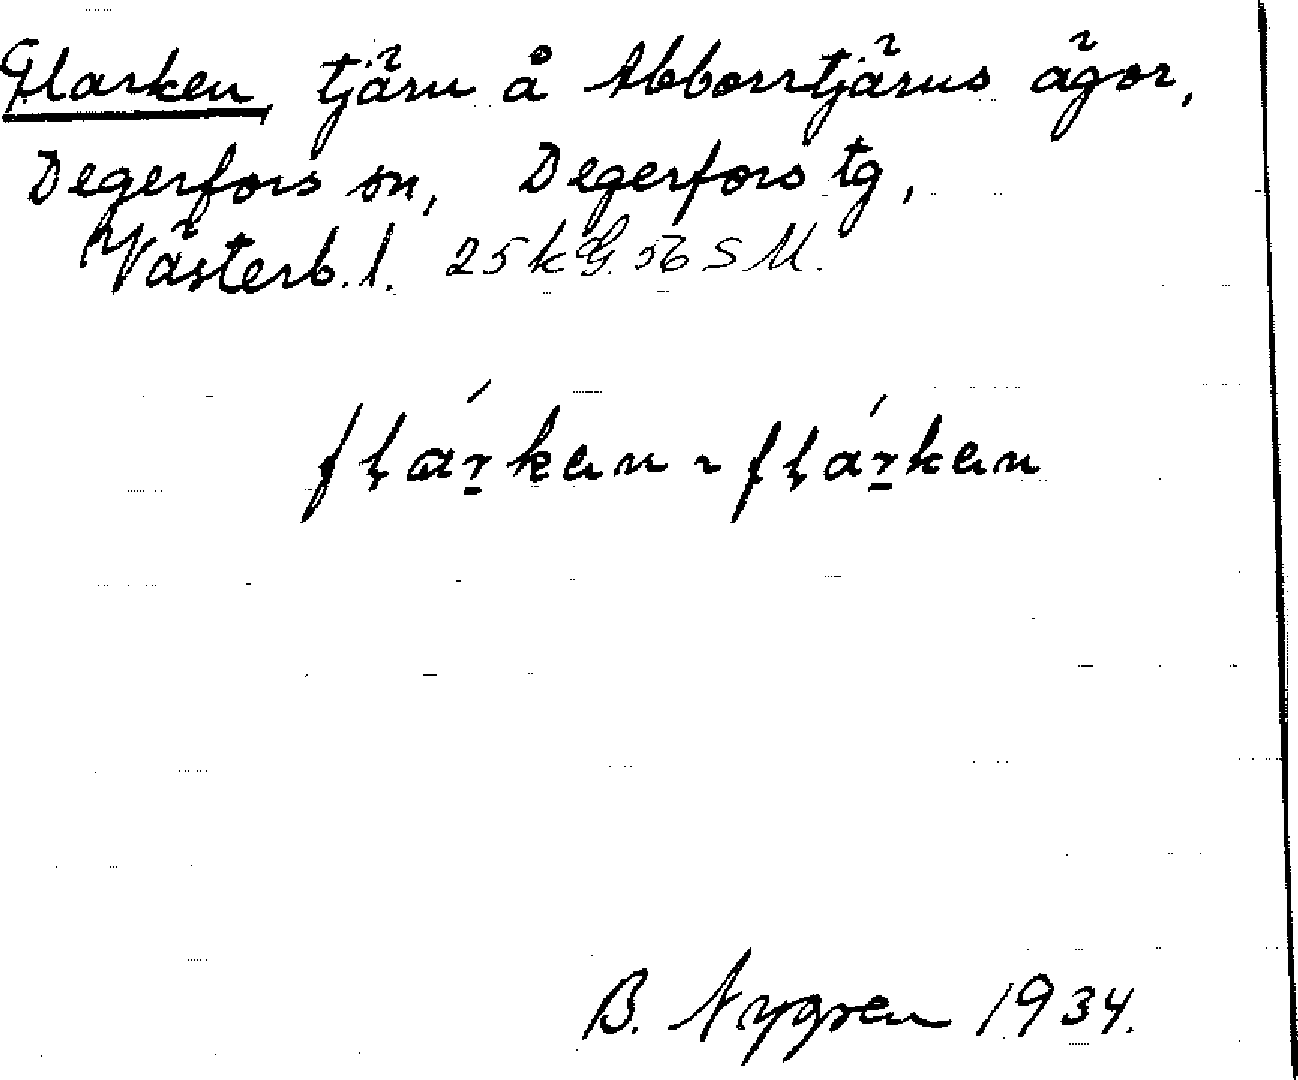 Flarken, tjärn å Abborrtjärns ägor,
Degerfors sn, Degerfors tg,
Västerb. l. 25 k G. 56 S M.
flárkɐn ~ flárkɐn
B. Nygren 1934.